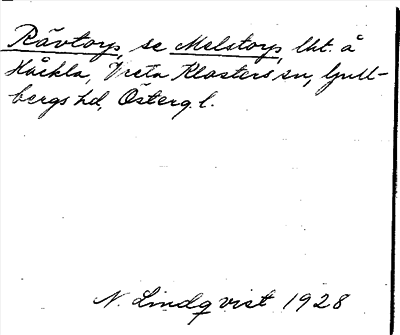 Rävtorp, se Melstorp, lht. å
Håckla, Vreta Klosters sn, Gull-
bergs hd, Österg. l.
N. Lindqvist 1928